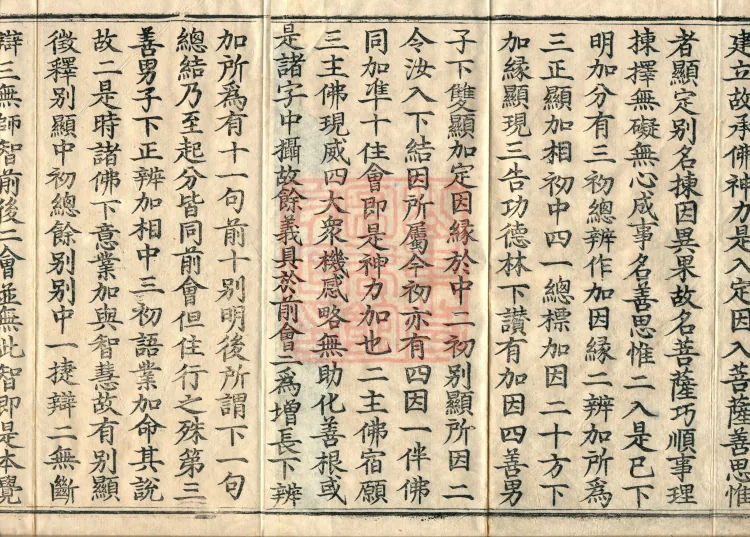 建立故承佛神力是入定因入菩薩善思惟
者顯定別名揀因異果故名菩薩巧順事理
揀擇無礙無心成事名善思惟二入是已下
明加分有三初總辨作加因緣二辨加所為
三正顯加相初中四一總標加因二十方下
加緣顯現三告功德林下讚有加因四善男
子下雙顯加定因緣於中二初別顯所因二
令汝入下結因所屬今初亦有四因一伴佛
同加準十住會即是神力加也二主佛宿願
三主佛現威四大衆機感略無助化善根或
是諸字中攝故餘義具於前會二為增長下辨
加所為有十一句前十別明後所謂下一句
總結乃至起分皆同前會但住行之殊第三
善男子下正辨加相中三初語業加命其說
故二是時諸佛下意業加與智慧故有別顯
徵釋別顯中初總餘別別中一捷辯二無斷
辯三無師智前後二會並無此智即是本覺